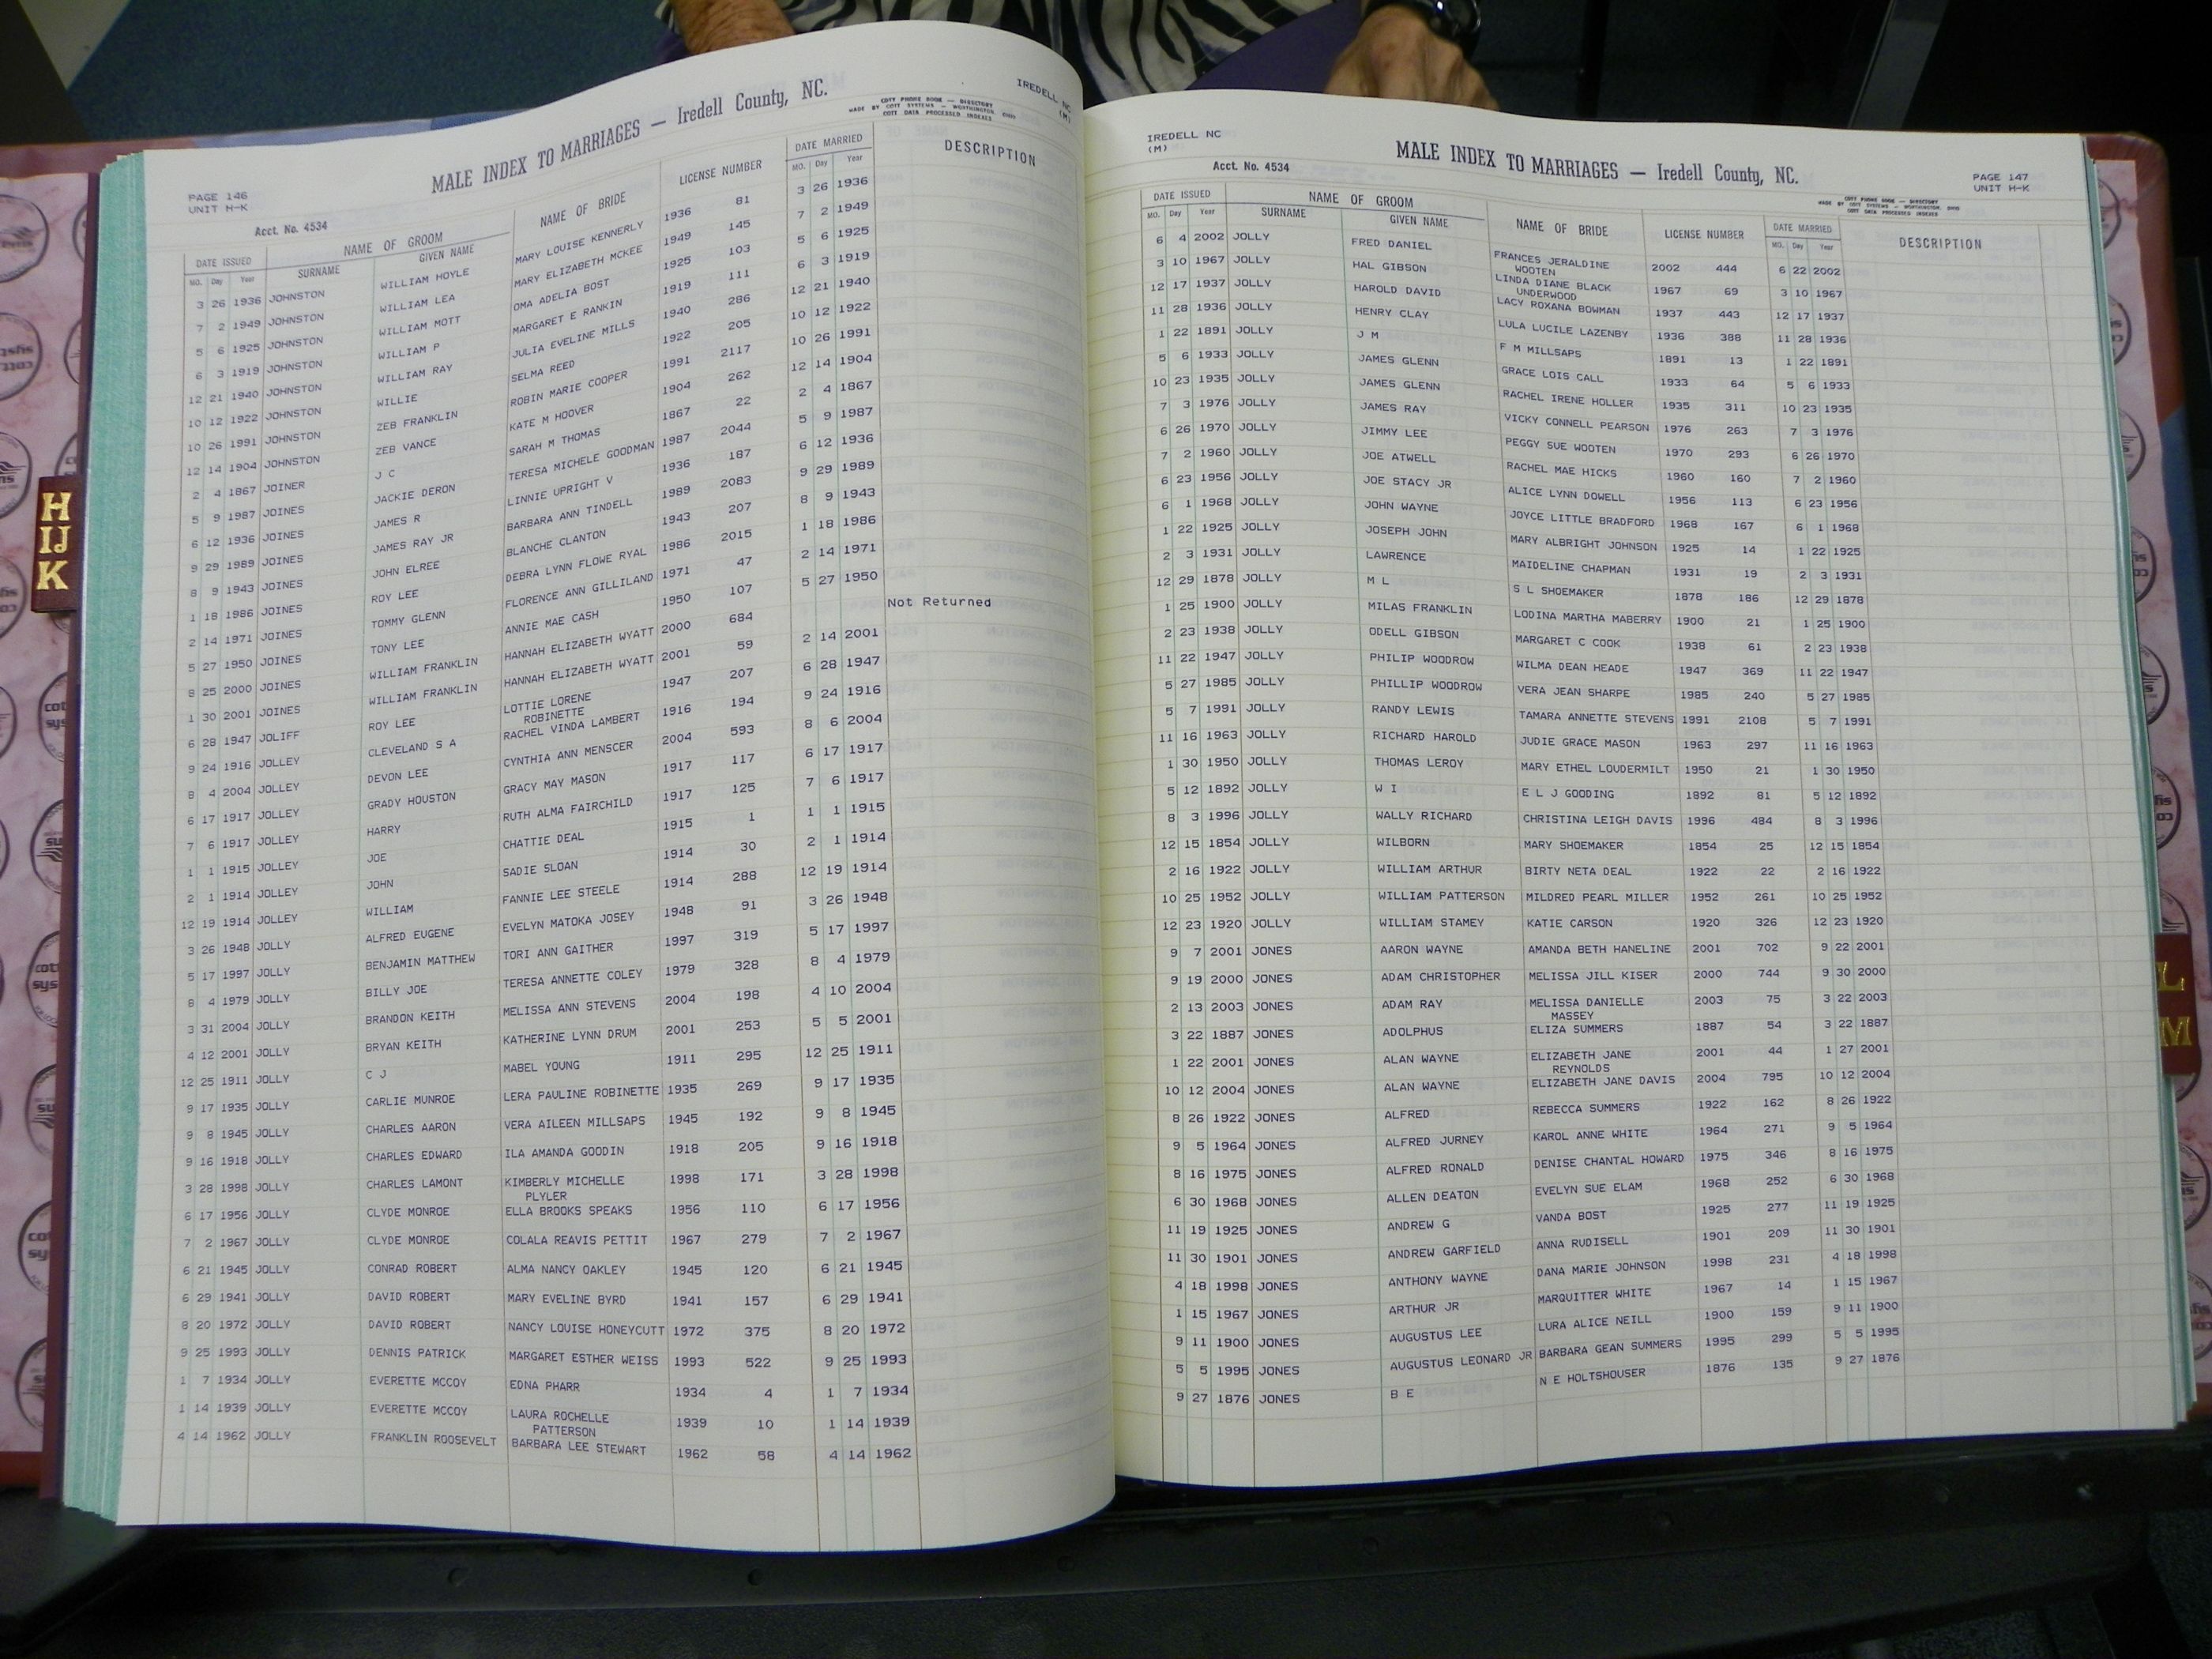 PAGE 146
UNIT H-K
MALE INDEX TO MARRIAGES — Iredell County, NC.
COTT PHONE BOOK — DIRECTORY
MADE BY COTT SYSTEMS — WORTHINGTON, OHIO
COTT DATA PROCESSED INDEXES
IREDELL NC
(M)
Acct. No. 4534
DATE ISSUED NAME OF GROOM NAME OF BRIDE LICENSE NUMBER DATE MARRIED DESCRIPTION
MO. Day Year SURNAME GIVEN NAME MO. Day Year
3 26 1936 JOHNSTON WILLIAM HOYLE MARY LOUISE KENNERLY 1936 81 3 26 1936
7 2 1949 JOHNSTON WILLIAM LEA MARY ELIZABETH MCKEE 1949 145 7 2 1949
5 6 1925 JOHNSTON WILLIAM MOTT OMA ADELIA BOST 1925 103 5 6 1925
6 3 1919 JOHNSTON WILLIAM P MARGARET E RANKIN 1919 111 6 3 1919
12 21 1940 JOHNSTON WILLIAM RAY JULIA EVELINE MILLS 1940 286 12 21 1940
10 12 1922 JOHNSTON WILLIE SELMA REED 1922 205 10 12 1922
10 26 1991 JOHNSTON ZEB FRANKLIN ROBIN MARIE COOPER 1991 2117 10 26 1991
12 14 1904 JOHNSTON ZEB VANCE KATE M HOOVER 1904 262 12 14 1904
2 4 1867 JOINER J C SARAH M THOMAS 1867 22 2 4 1867
5 9 1987 JOINES JACKIE DERON TERESA MICHELE GOODMAN 1987 2044 5 9 1987
6 12 1936 JOINES JAMES R LINNIE UPRIGHT V 1936 187 6 12 1936
9 29 1989 JOINES JAMES RAY JR BARBARA ANN TINDELL 1989 2083 9 29 1989
8 9 1943 JOINES JOHN ELREE BLANCHE CLANTON 1943 207 8 9 1943
1 18 1986 JOINES ROY LEE DEBRA LYNN FLOWE RYAL 1986 2015 1 18 1986
2 14 1971 JOINES TOMMY GLENN FLORENCE ANN GILLILAND 1971 47 2 14 1971
5 27 1950 JOINES TONY LEE ANNIE MAE CASH 1950 107 5 27 1950
8 25 2000 JOINES WILLIAM FRANKLIN HANNAH ELIZABETH WYATT 2000 684 Not Returned
1 30 2001 JOINES WILLIAM FRANKLIN HANNAH ELIZABETH WYATT 2001 59 2 14 2001
6 28 1947 JOLIFF ROY LEE LOTTIE LORENE 1947 207 6 28 1947
ROBINETTE
9 24 1916 JOLLEY CLEVELAND S A RACHEL VINDA LAMBERT 1916 194 9 24 1916
8 4 2004 JOLLEY DEVON LEE CYNTHIA ANN MENSCER 2004 593 8 6 2004
6 17 1917 JOLLEY GRADY HOUSTON GRACY MAY MASON 1917 117 6 17 1917
7 6 1917 JOLLEY HARRY RUTH ALMA FAIRCHILD 1917 125 7 6 1917
1 1 1915 JOLLEY JOE CHATTIE DEAL 1915 1 1 1 1915
2 1 1914 JOLLEY JOHN SADIE SLOAN 1914 30 2 1 1914
12 19 1914 JOLLEY WILLIAM FANNIE LEE STEELE 1914 288 12 19 1914
3 26 1948 JOLLY ALFRED EUGENE EVELYN MATOKA JOSEY 1948 91 3 26 1948
5 17 1997 JOLLY BENJAMIN MATTHEW TORI ANN GAITHER 1997 319 5 17 1997
8 4 1979 JOLLY BILLY JOE TERESA ANNETTE COLEY 1979 328 8 4 1979
3 31 2004 JOLLY BRANDON KEITH MELISSA ANN STEVENS 2004 198 4 10 2004
4 12 2001 JOLLY BRYAN KEITH KATHERINE LYNN DRUM 2001 253 5 5 2001
12 25 1911 JOLLY C J MABEL YOUNG 1911 295 12 25 1911
9 17 1935 JOLLY CARLIE MUNROE LERA PAULINE ROBINETTE 1935 269 9 17 1935
9 8 1945 JOLLY CHARLES AARON VERA AILEEN MILLSAPS 1945 192 9 8 1945
9 16 1918 JOLLY CHARLES EDWARD ILA AMANDA GOODIN 1918 205 9 16 1918
3 28 1998 JOLLY CHARLES LAMONT KIMBERLY MICHELLE 1998 171 3 28 1998
PLYLER
6 17 1956 JOLLY CLYDE MONROE ELLA BROOKS SPEAKS 1956 110 6 17 1956
7 2 1967 JOLLY CLYDE MONROE COLALA REAVIS PETTIT 1967 279 7 2 1967
6 21 1945 JOLLY CONRAD ROBERT ALMA NANCY OAKLEY 1945 120 6 21 1945
6 29 1941 JOLLY DAVID ROBERT MARY EVELINE BYRD 1941 157 6 29 1941
8 20 1972 JOLLY DAVID ROBERT NANCY LOUISE HONEYCUTT 1972 375 8 20 1972
9 25 1993 JOLLY DENNIS PATRICK MARGARET ESTHER WEISS 1993 522 9 25 1993
1 7 1934 JOLLY EVERETTE MCCOY EDNA PHARR 1934 4 1 7 1934
1 14 1939 JOLLY EVERETTE MCCOY LAURA ROCHELLE 1939 10 1 14 1939
PATTERSON
4 14 1962 JOLLY FRANKLIN ROOSEVELT BARBARA LEE STEWART 1962 58 4 14 1962
H
IJ
K
IREDELL NC
(M)
Acct. No. 4534
MALE INDEX TO MARRIAGES — Iredell County, NC.
PAGE 147
UNIT H-K
COTT PHONE BOOK — DIRECTORY
MADE BY COTT SYSTEMS — WORTHINGTON, OHIO
COTT DATA PROCESSED INDEXES
DATE ISSUED NAME OF GROOM NAME OF BRIDE LICENSE NUMBER DATE MARRIED DESCRIPTION
MO. Day Year SURNAME GIVEN NAME MO. Day Year
6 4 2002 JOLLY FRED DANIEL FRANCES JERALDINE 2002 444 6 22 2002
WOOTEN
3 10 1967 JOLLY HAL GIBSON LINDA DIANE BLACK 1967 69 3 10 1967
UNDERWOOD
12 17 1937 JOLLY HAROLD DAVID LACY ROXANA BOWMAN 1937 443 12 17 1937
11 28 1936 JOLLY HENRY CLAY LULA LUCILE LAZENBY 1936 388 11 28 1936
1 22 1891 JOLLY J M F M MILLSAPS 1891 13 1 22 1891
5 6 1933 JOLLY JAMES GLENN GRACE LOIS CALL 1933 64 5 6 1933
10 23 1935 JOLLY JAMES GLENN RACHEL IRENE HOLLER 1935 311 10 23 1935
7 3 1976 JOLLY JAMES RAY VICKY CONNELL PEARSON 1976 263 7 3 1976
6 26 1970 JOLLY JIMMY LEE PEGGY SUE WOOTEN 1970 293 6 26 1970
7 2 1960 JOLLY JOE ATWELL RACHEL MAE HICKS 1960 160 7 2 1960
6 23 1956 JOLLY JOE STACY JR ALICE LYNN DOWELL 1956 113 6 23 1956
6 1 1968 JOLLY JOHN WAYNE JOYCE LITTLE BRADFORD 1968 167 6 1 1968
1 22 1925 JOLLY JOSEPH JOHN MARY ALBRIGHT JOHNSON 1925 14 1 22 1925
2 3 1931 JOLLY LAWRENCE MAIDELINE CHAPMAN 1931 19 2 3 1931
12 29 1878 JOLLY M L S L SHOEMAKER 1878 186 12 29 1878
1 25 1900 JOLLY MILAS FRANKLIN LODINA MARTHA MABERRY 1900 21 1 25 1900
2 23 1938 JOLLY ODELL GIBSON MARGARET C COOK 1938 61 2 23 1938
11 22 1947 JOLLY PHILIP WOODROW WILMA DEAN HEADE 1947 369 11 22 1947
5 27 1985 JOLLY PHILLIP WOODROW VERA JEAN SHARPE 1985 240 5 27 1985
5 7 1991 JOLLY RANDY LEWIS TAMARA ANNETTE STEVENS 1991 2108 5 7 1991
11 16 1963 JOLLY RICHARD HAROLD JUDIE GRACE MASON 1963 297 11 16 1963
1 30 1950 JOLLY THOMAS LEROY MARY ETHEL LOUDERMILT 1950 21 1 30 1950
5 12 1892 JOLLY W I E L J GOODING 1892 81 5 12 1892
8 3 1996 JOLLY WALLY RICHARD CHRISTINA LEIGH DAVIS 1996 484 8 3 1996
12 15 1854 JOLLY WILBORN MARY SHOEMAKER 1854 25 12 15 1854
2 16 1922 JOLLY WILLIAM ARTHUR BIRTY NETA DEAL 1922 22 2 16 1922
10 25 1952 JOLLY WILLIAM PATTERSON MILDRED PEARL MILLER 1952 261 10 25 1952
12 23 1920 JOLLY WILLIAM STAMEY KATIE CARSON 1920 326 12 23 1920
9 7 2001 JONES AARON WAYNE AMANDA BETH HANELINE 2001 702 9 22 2001
9 19 2000 JONES ADAM CHRISTOPHER MELISSA JILL KISER 2000 744 9 30 2000
2 13 2003 JONES ADAM RAY MELISSA DANIELLE 2003 75 3 22 2003
MASSEY
3 22 1887 JONES ADOLPHUS ELIZA SUMMERS 1887 54 3 22 1887
1 22 2001 JONES ALAN WAYNE ELIZABETH JANE 2001 44 1 27 2001
REYNOLDS
10 12 2004 JONES ALAN WAYNE ELIZABETH JANE DAVIS 2004 795 10 12 2004
8 26 1922 JONES ALFRED REBECCA SUMMERS 1922 162 8 26 1922
9 5 1964 JONES ALFRED JURNEY KAROL ANNE WHITE 1964 271 9 5 1964
8 16 1975 JONES ALFRED RONALD DENISE CHANTAL HOWARD 1975 346 8 16 1975
6 30 1968 JONES ALLEN DEATON EVELYN SUE ELAM 1968 252 6 30 1968
11 19 1925 JONES ANDREW G VANDA BOST 1925 277 11 19 1925
11 30 1901 JONES ANDREW GARFIELD ANNA RUDISELL 1901 209 11 30 1901
4 18 1998 JONES ANTHONY WAYNE DANA MARIE JOHNSON 1998 231 4 18 1998
1 15 1967 JONES ARTHUR JR MARQUITTER WHITE 1967 14 1 15 1967
9 11 1900 JONES AUGUSTUS LEE LURA ALICE NEILL 1900 159 9 11 1900
5 5 1995 JONES AUGUSTUS LEONARD JR BARBARA GEAN SUMMERS 1995 299 5 5 1995
9 27 1876 JONES B E N E HOLTSHOUSER 1876 135 9 27 1876
L
M